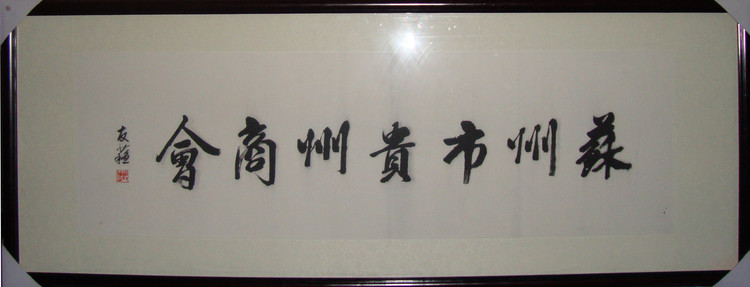 蘇州市貴州商會
友蘇